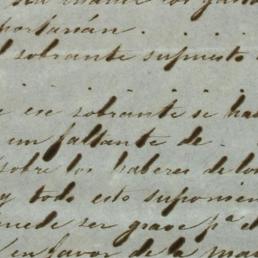 portarán.
sobrante supuesto
e ese sobrante se ha
un faltante de.
sobre los haberes de los
y todo esto suponien
puede ser grave pª el
en favor de la